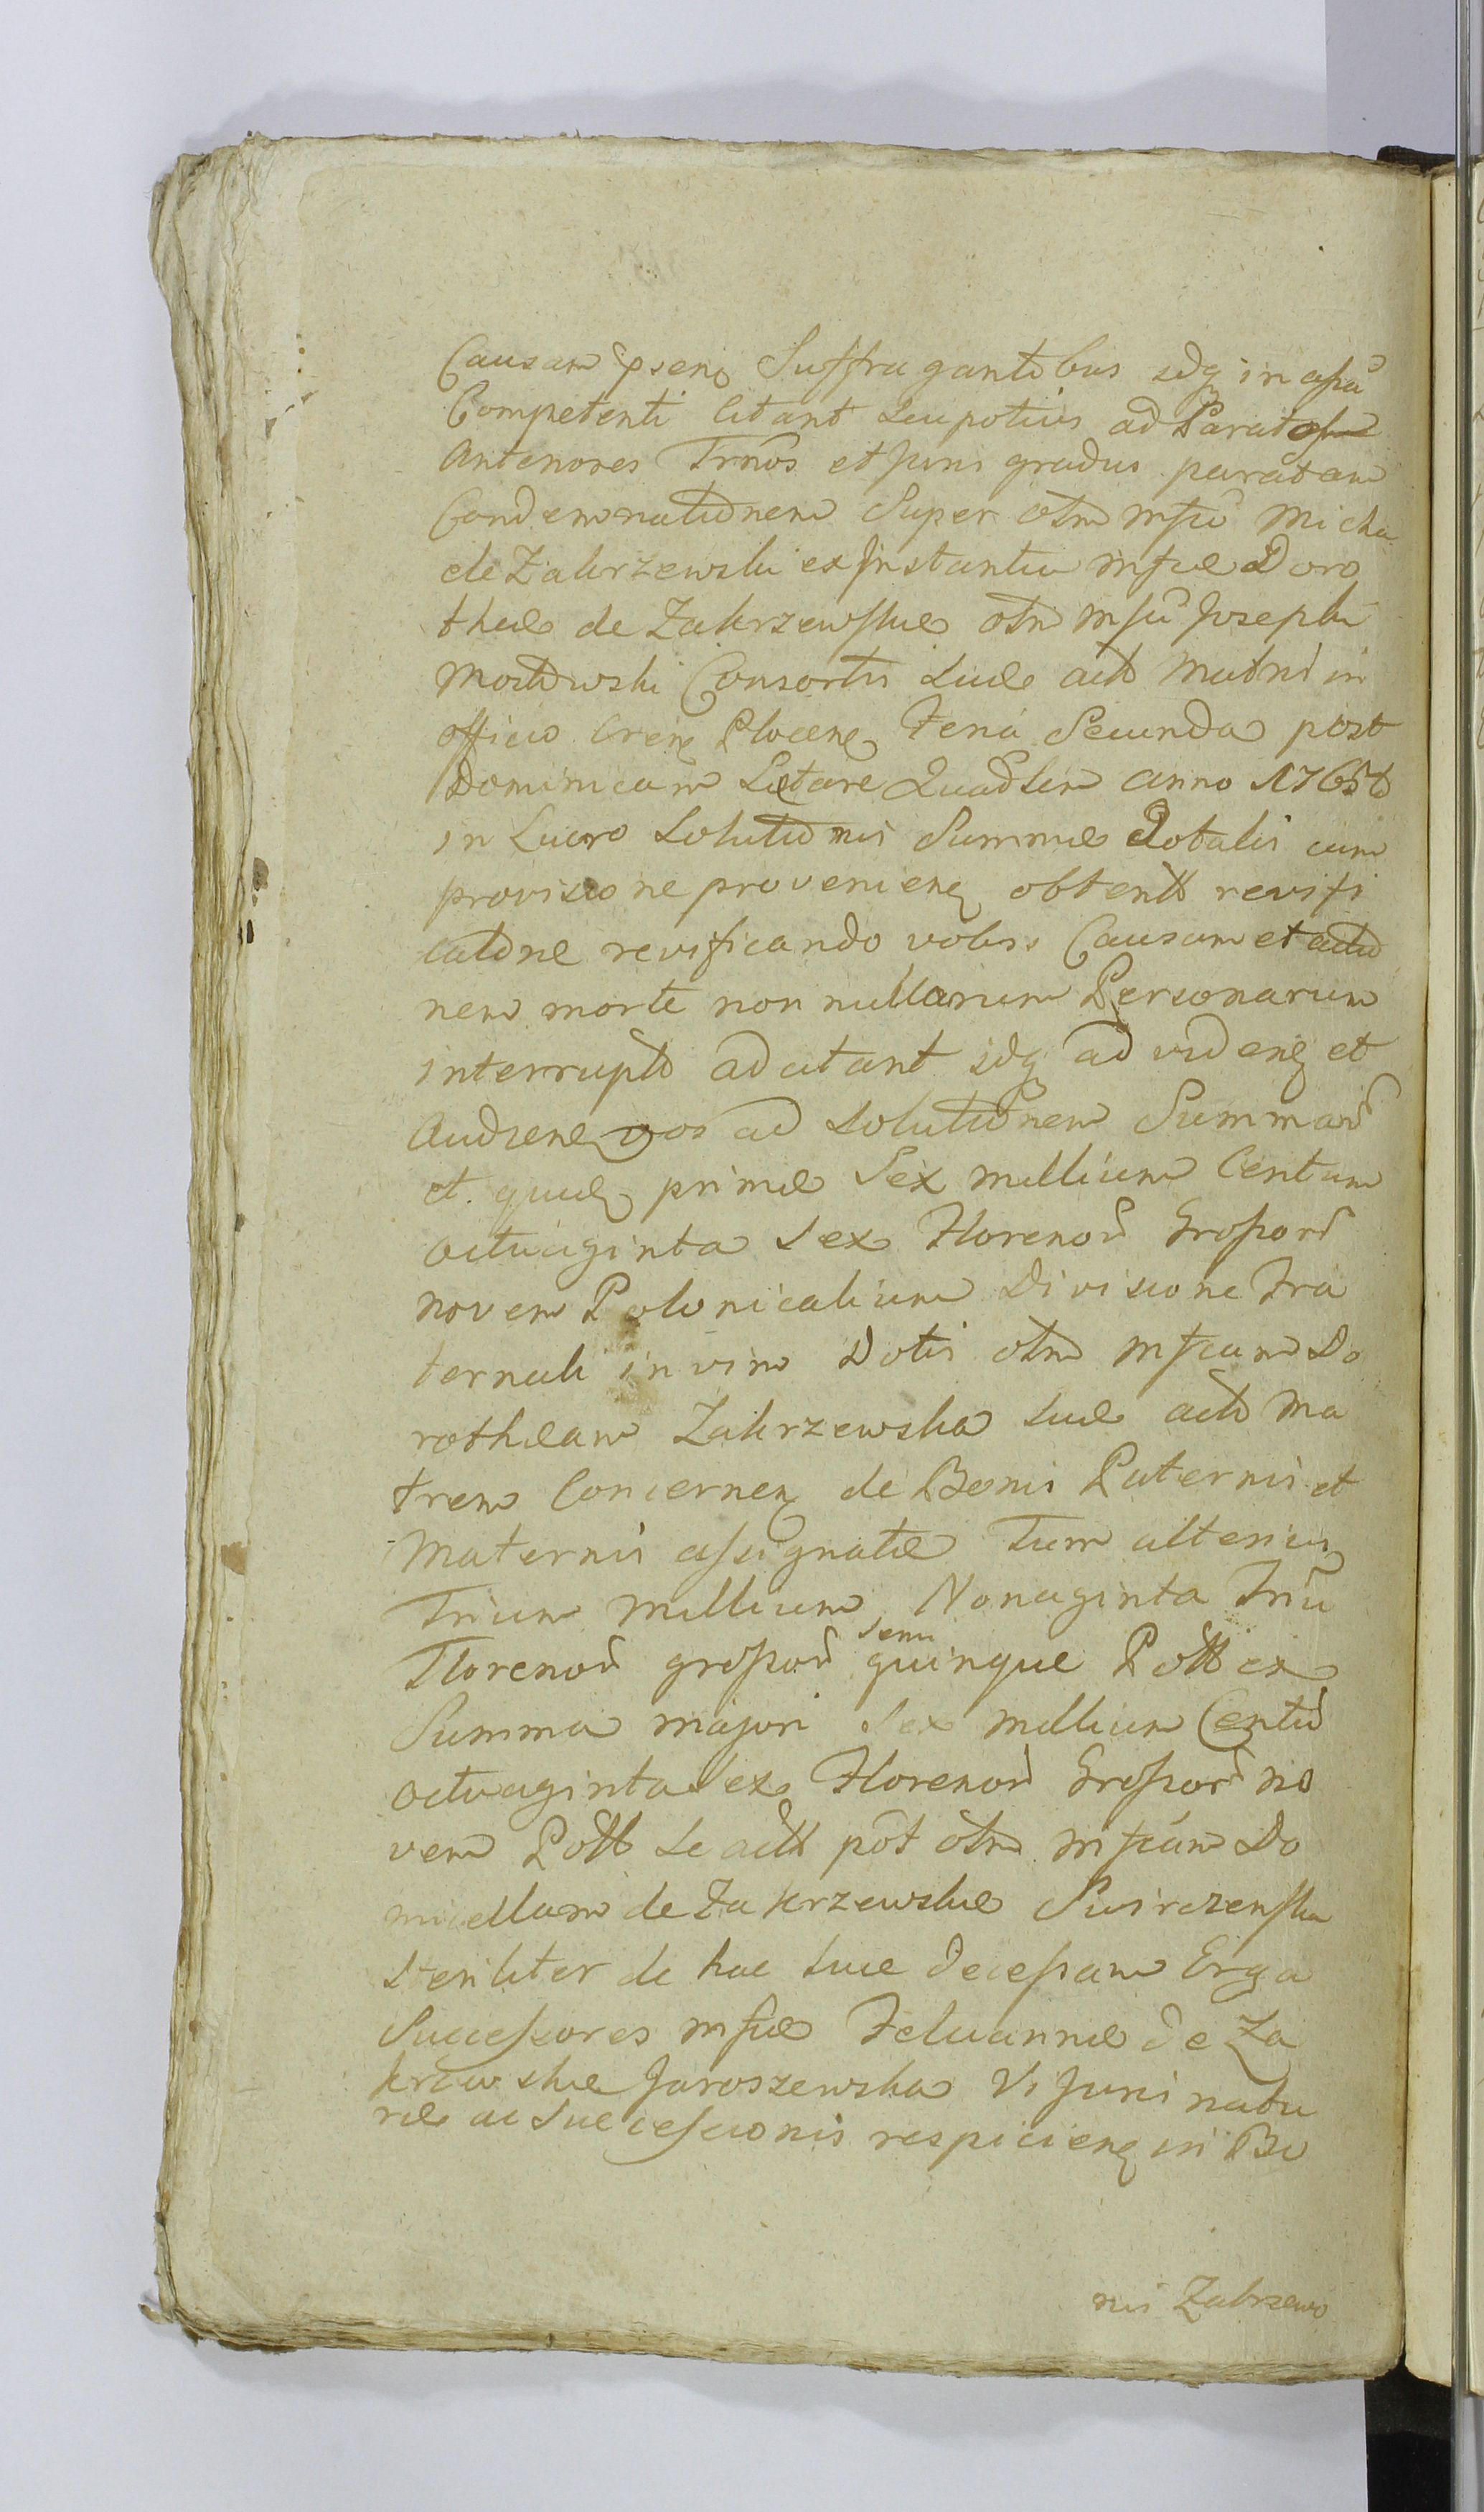 Causam pseng Suffragantibus idg in aſſu
Competenti Citant Seupotius ad Parat
Anteriores Trnos et juris gradus paratam
Condemnationem Super olm Mfco Micha
de Zakrzewski ex Instantia Mfcæ Doro
theæ de Zakrzewskie olm Mfci Josephi
Mostowski Consortis Suæ actt Matris in
officio Creng Ploceng Feria Secunda post
Dominicam Lætare Quadslem anno 1765to
in Lucro Solutionis Summæ dotalis cum
provisione provenieng obtentt revifi
catione revificando vobis. Causam et actio
nem morte non nullarum Personarum
interrupta adcitant idg ad videng et
Audieng vos ad Solutionem Summar
et quidg primæ Sex millium Centum
octuaginta Sex Florenor Groſsor
novem Polonicalium Divisione Fra
ternali in vim Dotis olm Mfcam Do
rotheam Zakrzewska Suæ actt Ma
trem Concerneng de Bonis Paternis et
Maternis aſsignatæ Tum alterius
Trium Millium Nonaginta Triu
Florenor groſsor semi quinque Poll ex
Summa majori Sex millium Centu
octuaginta Sex Florenor Groſsor no
vem Poll Se actt post olm Mfcam Do
micellam de Zakrzewskie
Steriliter de hac luce deceſsam Erga
Succeſsores Mfcæ Felicianne de Za
krzewskie Jaroszewska Vi Juris natu
ræ ac Succeſsionis respicieng in Bo
nis Zakrzewo